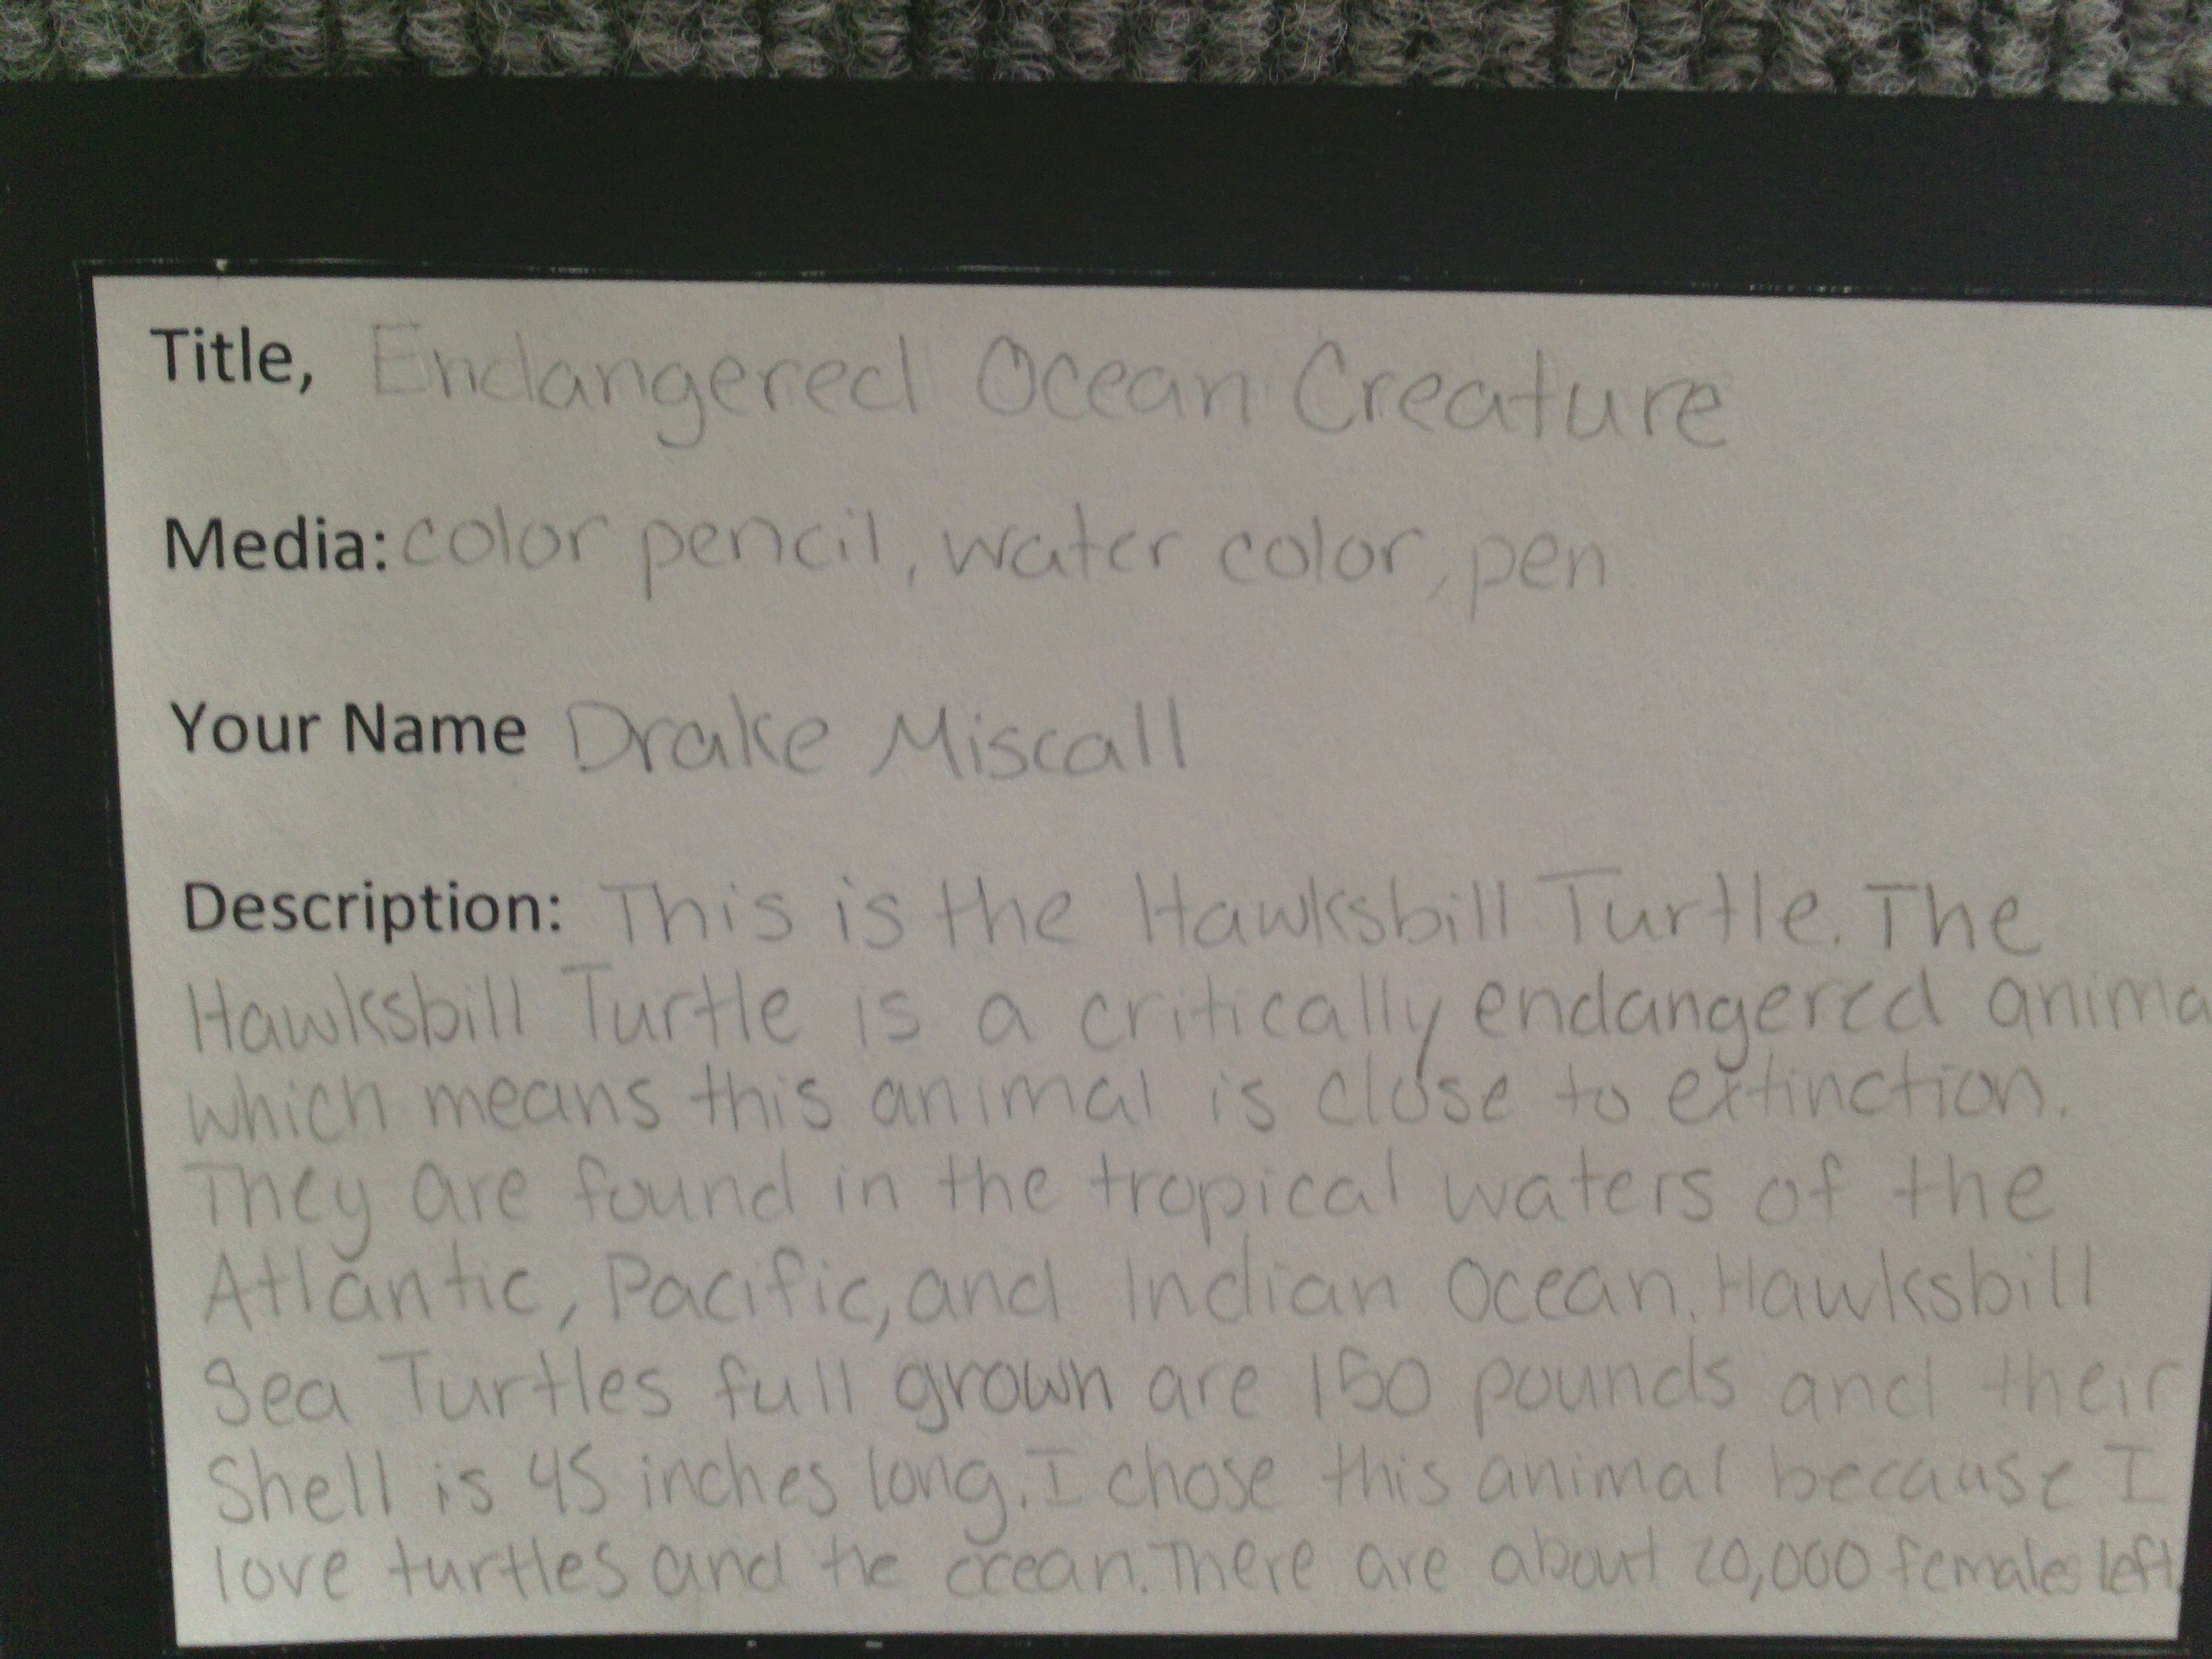 Title, Endangered Ocean Creature
Media: color pencil, water color, pen
Your Name Drake Miscall
Description: This is the Hawksbill Turtle. The
Hawksbill Turtle is a critically endangered anima
which means this animal is close to extinction.
They are found in the tropical waters of the
Atlantic, Pacific, and Indian Ocean. Hawksbill
Sea Turtles full grown are 150 pounds and their
Shell is 45 inches long. I chose this animal because I
love turtles and the ocean. There are about 20,000 females left